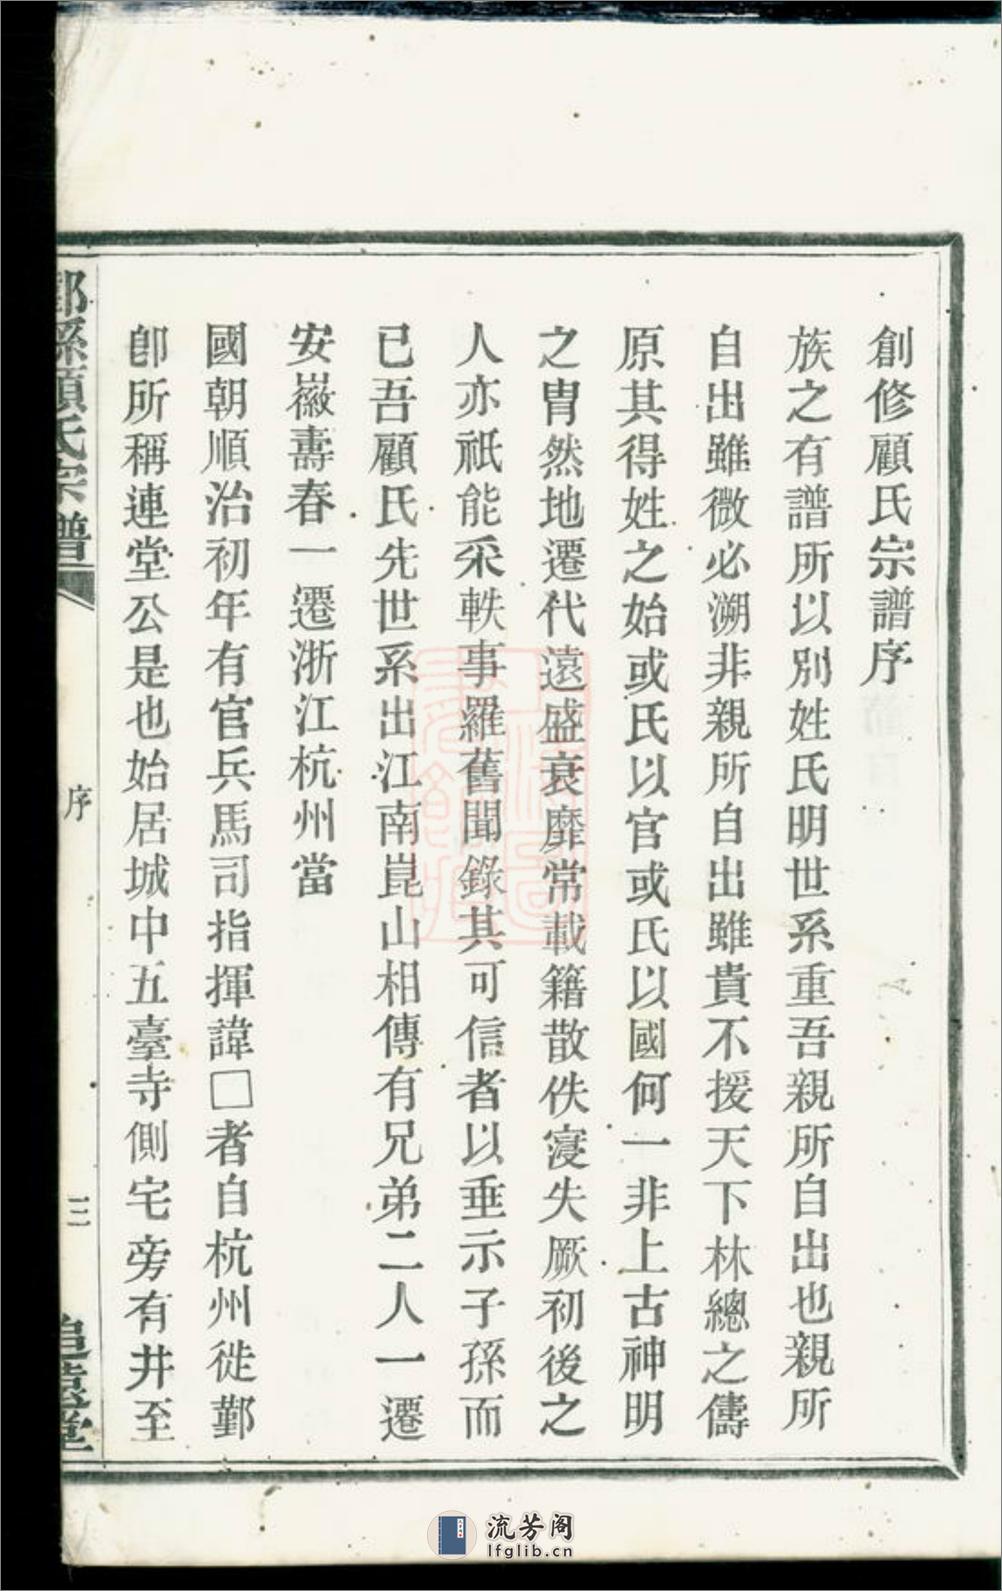 創修顧氏宗譜序
族之有譜所以別姓氏明世系重吾親所自出也親所
自出雖微必溯非親所自出雖貴不援天下林總之儔
原其得姓之始或氏以官或氏以國何一非上古神明
之胄然地遷代遠盛衰靡常載籍散佚寖失厥初後之
人亦祇能采軼事羅舊聞錄其可信者以垂示子孫而
已吾顧氏先世系出江南崑山相傳有兄弟二人一遷
安徽壽春一遷浙江杭州當
國朝順治初年有官兵馬司指揮諱□者自杭州徙鄞
卽所稱連堂公是也始居城中五臺寺側宅旁有井至
鄞縣顧氏宗譜
序
三
追遠堂
流芳阁
lfglib.cn